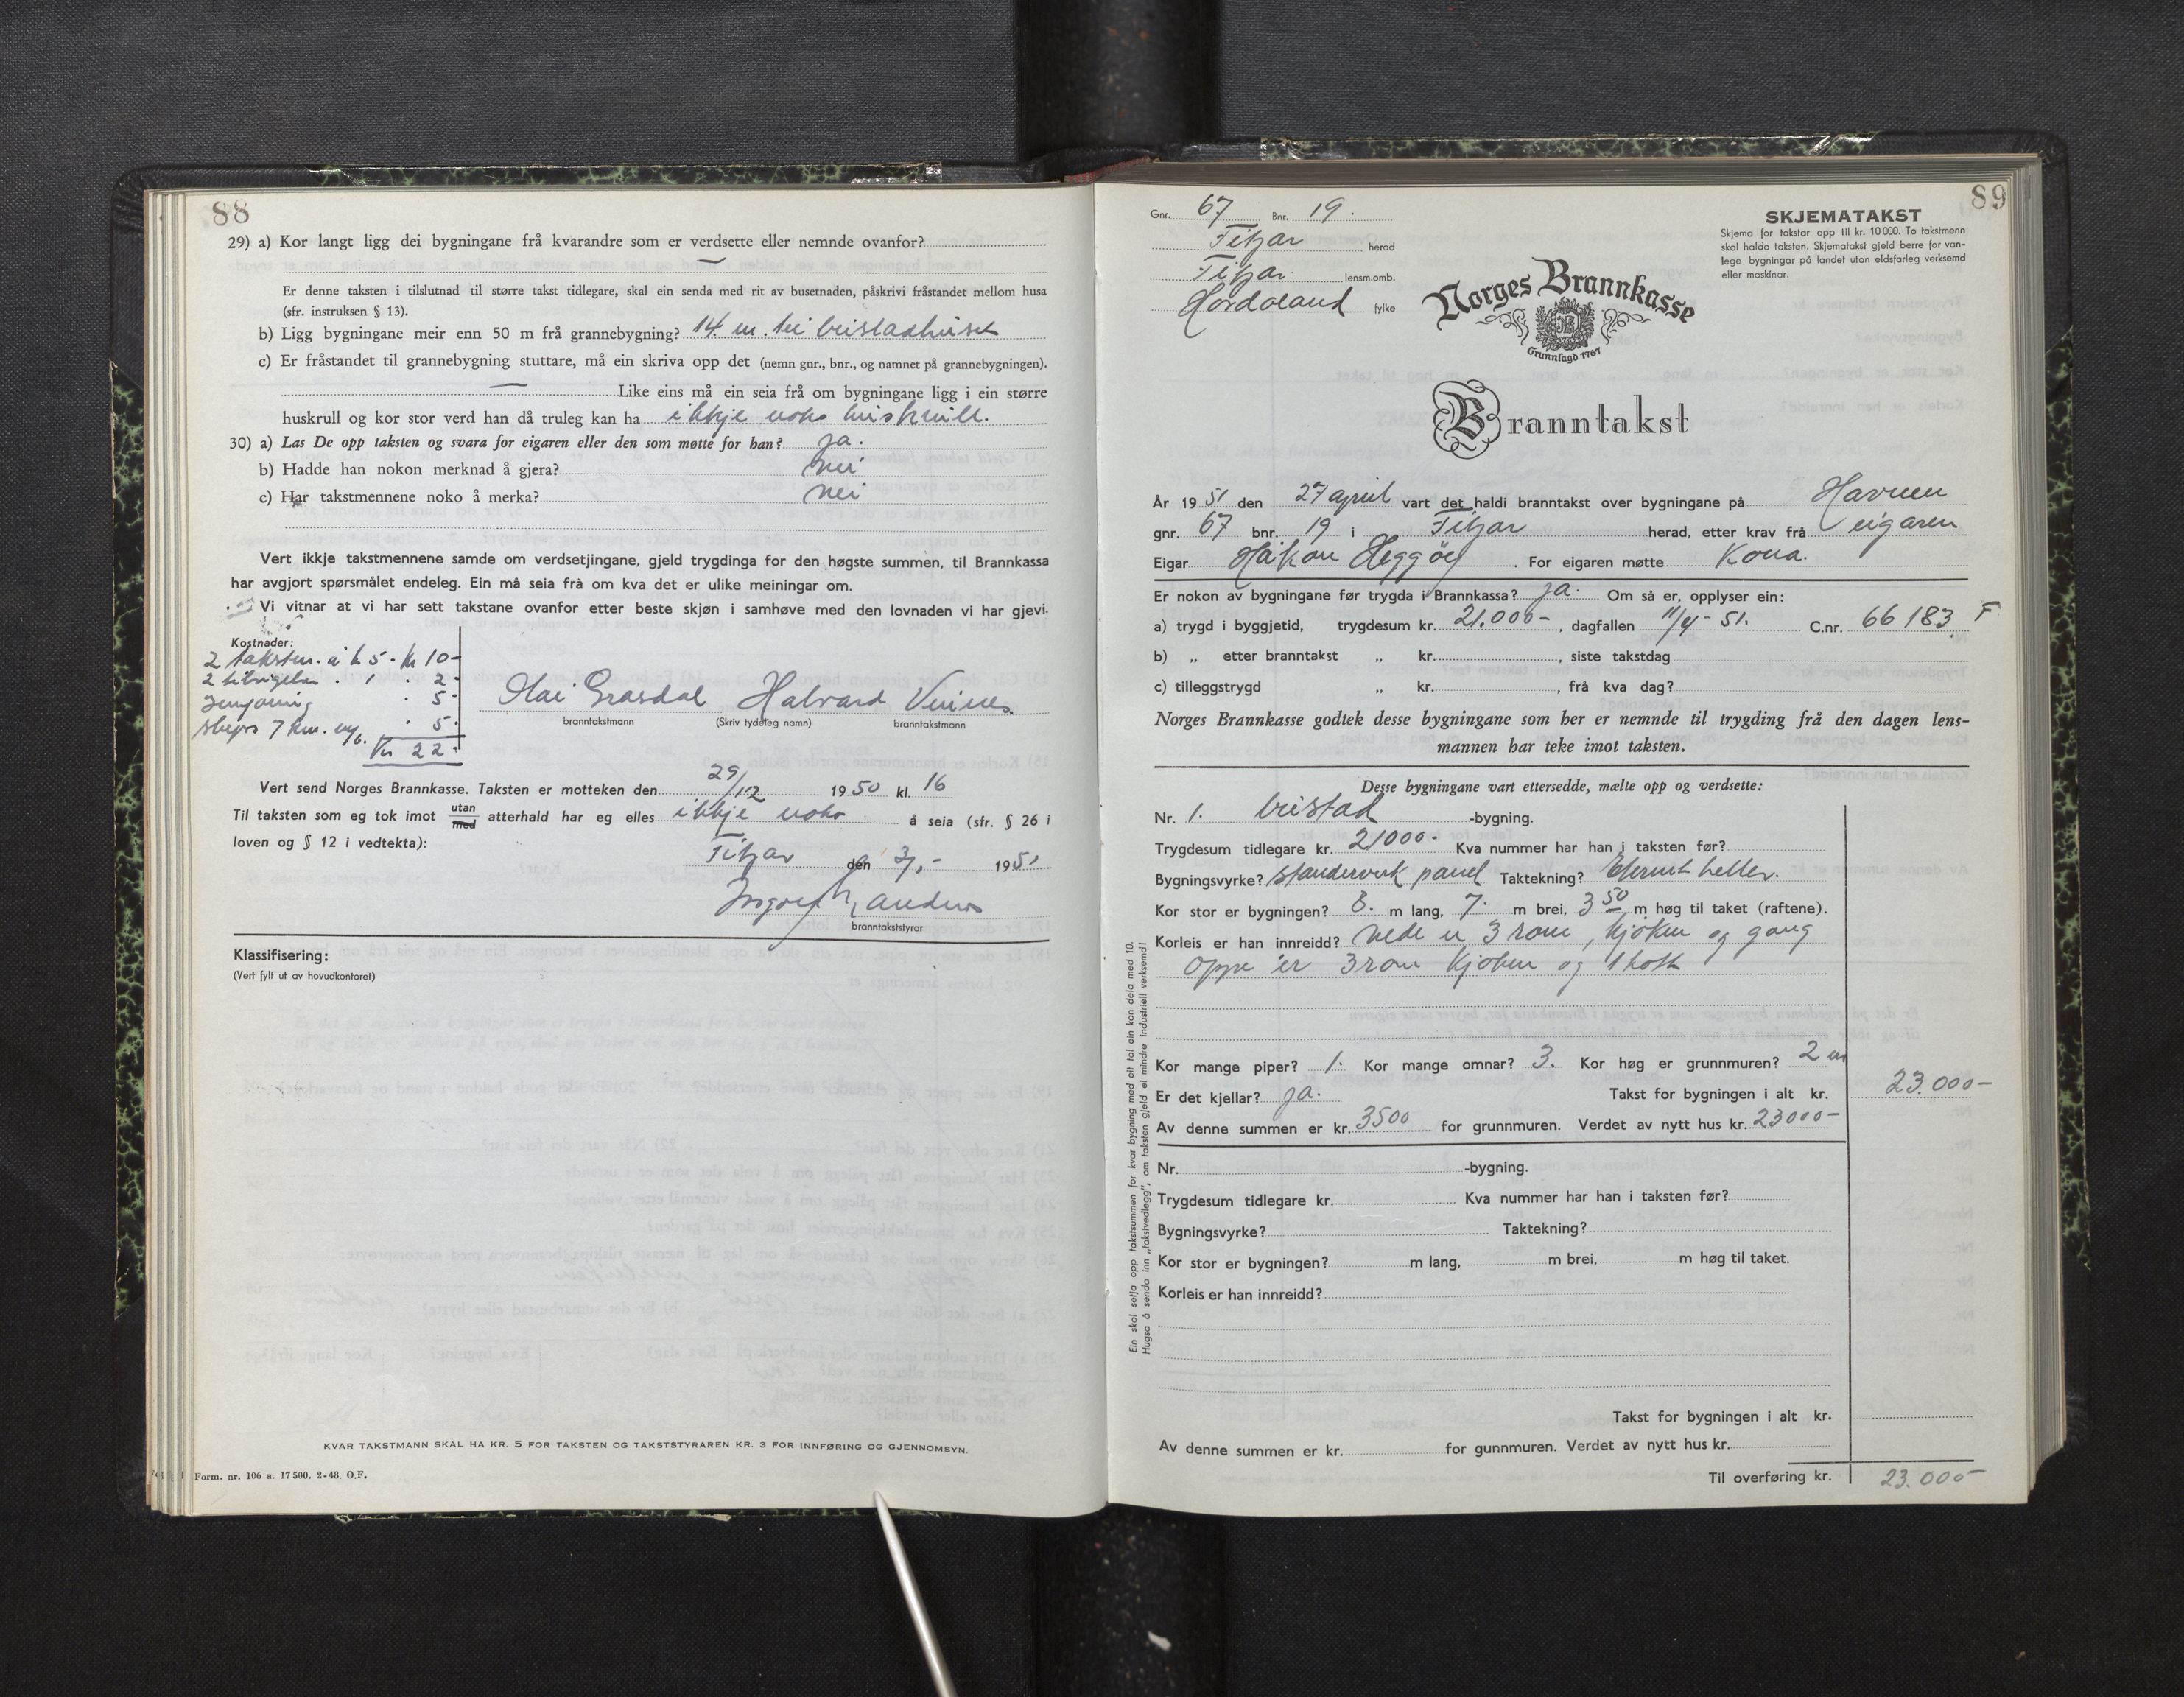 88
29) a) Kor langt ligg dei bygningane frå kvarandre som er verdsette eller nemnde ovanfor?
—
Er denne taksten i tilslutnad til større takst tidlegare, skal ein senda med rit av busetnaden, påskrivi fråstandet mellom husa
(sfr. instruksen § 13).
b) Ligg bygningane meir enn 50 m frå grannebygning? 14. m. til bustadhuset
c) Er fråstandet til grannebygning stuttare, må ein skriva opp det (nemn gnr., bnr., og namnet på grannebygningen).
— Like eins må ein seia frå om bygningane ligg i ein større
huskrull og kor stor verd han då truleg kan ha ikkje noko huskrull.
30) a) Las De opp taksten og svara for eigaren eller den som møtte for han? ja.
b) Hadde han nokon merknad å gjera? nei
c) Har takstmennene noko å merka? nei
Vert ikkje takstmennene samde om verdsetjingane, gjeld trygdinga for den høgste summen, til Brannkassa
har avgjort spørsmålet endeleg. Ein må seia frå om kva det er ulike meiningar om.
Vi vitnar at vi har sett takstane ovanfor etter beste skjøn i samhøve med den lovnaden vi har gjevi.
Kostnader:
2 takstm. á k 5 - kr 10-
2 . 1 . 2-
. 5-
skyss 7 km. . 5-
Kr 22-
Olai Grasdal Halvard Vines.
branntakstmann (Skriv tydeleg namn) branntakstmann
Vert send Norges Brannkasse. Taksten er motteken den 29/12 1950 kl. 16
Til taksten som eg tok imot utan med atterhald har eg elles ikkje noko å seia (sfr. § 26 i
loven og § 12 i vedtekta):
Fitjar den 3/1 - 1951
branntakststyrar
Klassifisering:
(Vert fylt ut av hovudkontoret)
KVAR TAKSTMANN SKAL HA KR. 5 FOR TAKSTEN OG TAKSTSTYRAREN KR. 3 FOR INNFØRING OG GJENNOMSYN.
Form. nr. 106 a. 17 500. 2-48. O.F.
89
Gnr. 67 Bnr. 19.
Fitjar herad
Fitjar lensm.omb.
Hordaland fylke
SKJEMATAKST
Skjema for takstar opp til kr. 10 000. To takstmenn
skal halda taksten. Skjematakst gjeld berre for van-
lege bygningar på landet utan eldsfarleg verksemd
eller maskinar.
Norges Brannkasse
Grunnlagd 1767
Branntakst
År 1951 den 27 april vart det haldi branntakst over bygningane på Havnen
gnr. 67 bnr. 19 i Fitjar herad, etter krav frå eigaren
Eigar Håkon Heggøy. For eigaren møtte Kona.
Er nokon av bygningane før trygda i Brannkassa? ja. Om så er, opplyser ein:
a) trygd i byggjetid, trygdesum kr. 21.000-, dagfallen 11/4- 51. C.nr. 66183 F
b) „ etter branntakst „ kr., siste takstdag
c) tilleggstrygd „ kr., frå kva dag?
Norges Brannkasse godtek desse bygningane som her er nemnde til trygding frå den dagen lens-
mannen har teke imot taksten.
Desse bygningane vart ettersedde, mælte opp og verdsette:
Nr. 1. bustad -bygning.
Trygdesum tidlegare kr. 21000- Kva nummer har han i taksten før?
Bygningsvyrke? standerverk panel Taktekning? Eternit heller.
Kor stor er bygningen? 8. m lang, 7. m brei, 3 50 m høg til taket (raftene).
Korleis er han innreidd? Nede er 3 rom, kjøken og gang
Oppe er 3 rom kjøken og 1 kott
Kor mange piper? 1. Kor mange omnar? 3. Kor høg er grunnmuren? 2 m
Er det kjellar? ja. Takst for bygningen i alt kr. 23.000-
Av denne summen er kr. 3500 for grunnmuren. Verdet av nytt hus kr. 23000-
Nr. -bygning.
Trygdesum tidlegare kr. Kva nummer har han i taksten før?
Bygningsvyrke? Taktekning?
Kor stor er bygningen? m lang, m brei, m høg til taket.
Korleis er han innreidd?
Takst for bygningen i alt kr.
Av denne summen er kr. for gunnmuren. Verdet av nytt hus kr.
Til overføring kr. 23.000-
Ein skal setja opp takstsummen for kvar bygning med eit tal ein kan dela med 10.
Hugsa å senda inn „takstvedlegg", om taksten gjeld ei mindre industriell verksemd!